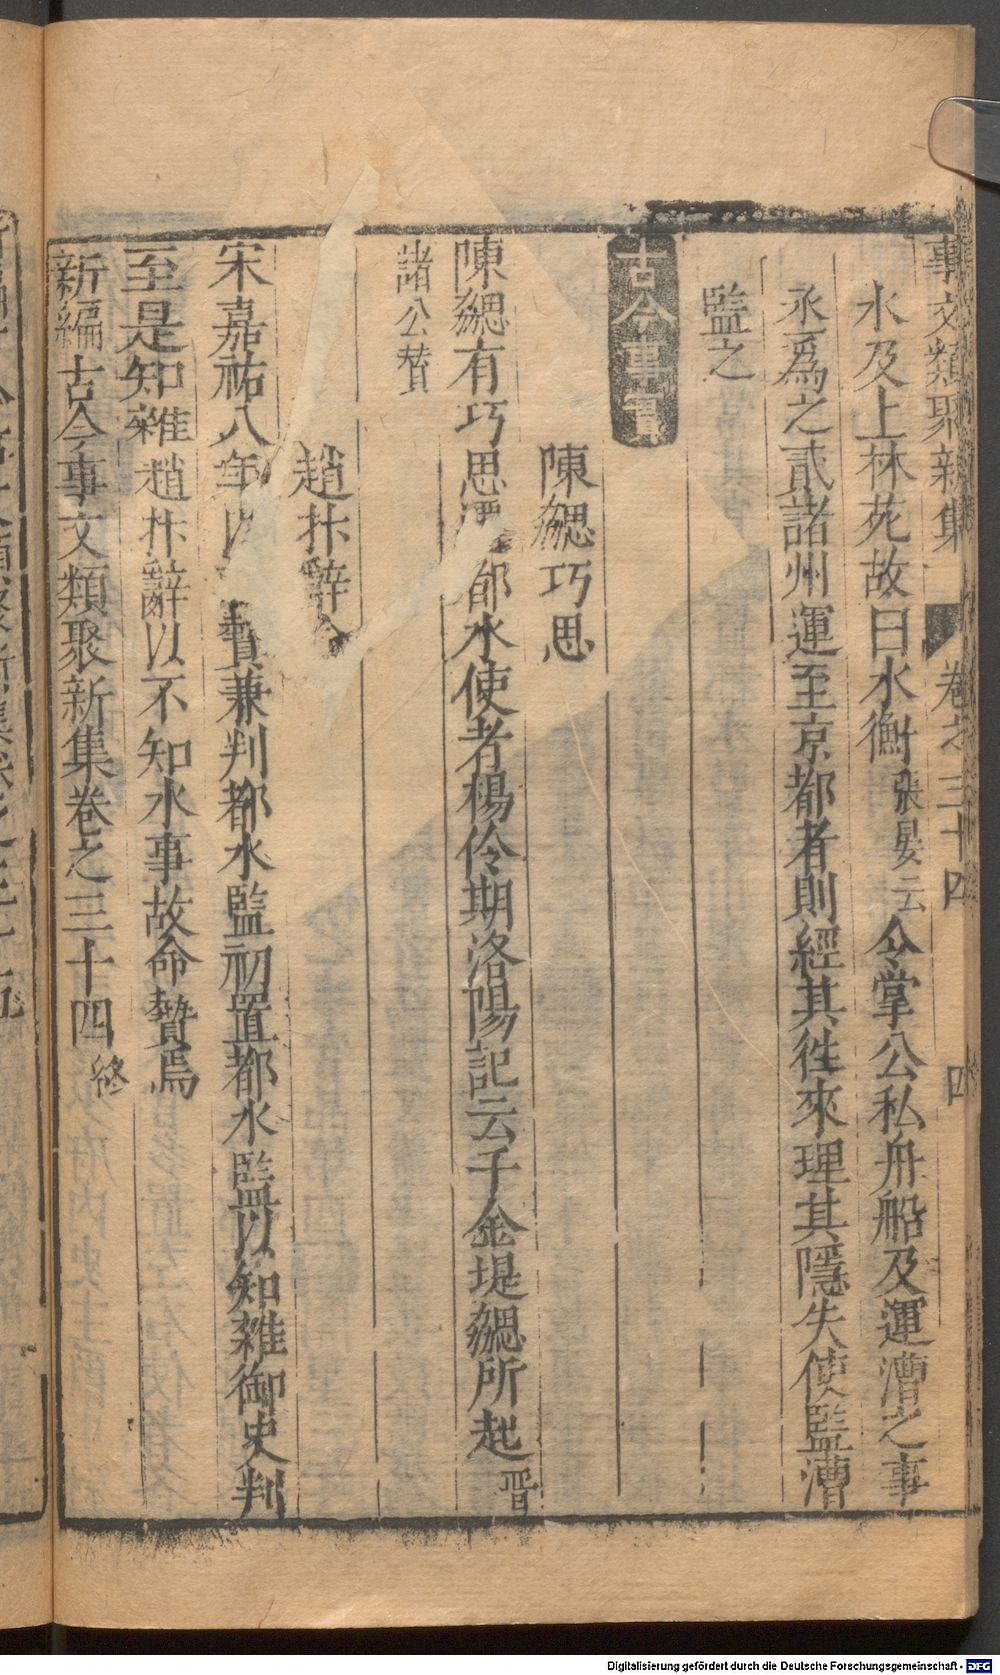 事文類聚新集 卷之三十四 四
水及上林苑故曰水衡張晏云令掌公私舟船及運漕之事
丞爲之貳諸州運至京都者則經其徃來理其隱失使監漕
監之
古今事實
陳勰巧思
陳勰有巧思 都水使者楊佺期洛陽記云千金堤勰所起晋
諸公贊
趙抃辭令
宋嘉祐八年以 贄兼判都水監初置都水監以知雜御史判
至是知雜趙抃辭以不知水事故命贄焉
新編古今事文類聚新集卷之三十四終
Digitalisierung gefördert durch die Deutsche Forschungsgemeinschaft - DFG